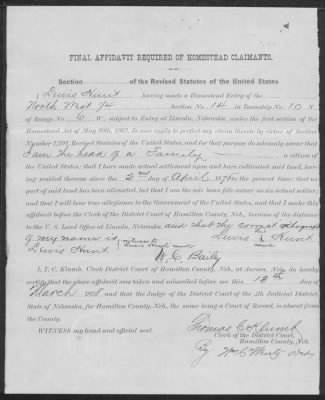 FINAL AFFIDAVIT REQUIRED OF HOMESTEAD CLAIMANTS.
Section of the Revised Statutes of the United States
I Lewis Hunt having made a Homestead Entry of the
North West 1/4 Section No. 14 in Township No. 10 N.
of Range No. 6 W., subject to Entry at Lincoln, Nebraska, under the first section of the
Homestead Act of May 20th, 1862, do now apply to perfect my claim thereto by virtue of Section
Number 2,291, Revised Statutes of the United States, and for that purpose do solemnly swear that
I am the head of a Family a citizen of
the United States; that I have made actual settlement upon and have cultivated said land, having
resided thereon since the 2nd day of April 187 to the present time; that no
part of said land has been alienated, but that I am the sole bona fide owner as an actual settler,
and that I will bear true allegiance to the Government of the United States, and that I make this
affidavit before the Clerk of the District Court of Hamilton County, because of the distance
to the U. S. Land Office at Lincoln, Nebraska, and that the correct orthography
of my name is Lewis Hunt
Lewis Hunt
W. C. Baily
I, T. C. Klumb, Clerk District Court of Hamilton County, Neb. at Aurora, Neb., do hereby
certify that the above affidavit was taken and subscribed before me this 12th day of
March 1878, and that the Judge of the District Court of the Judicial District,
State of Nebraska, for Hamilton County, Neb. the same being a Court of Record, is absent from
the County.
WITNESS my hand and official seal.
Thomas C. Klumb
Clerk of the District Court,
Hamilton County, Neb.
By Wm C